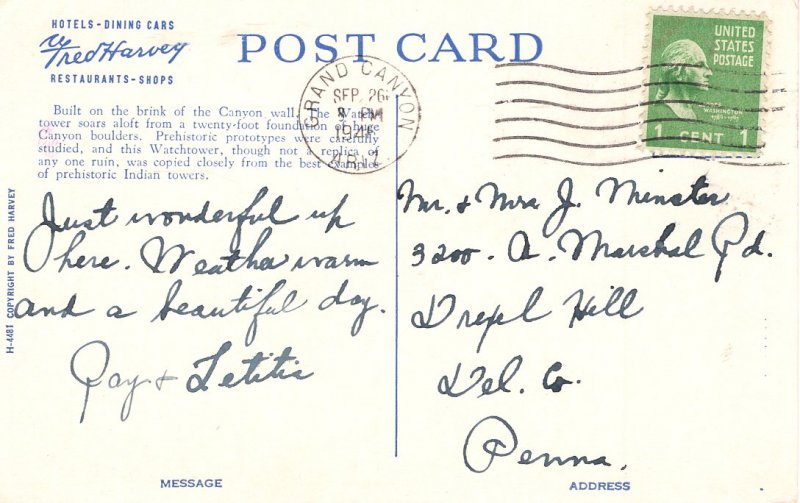 HOTELS - DINING CARS
Fred Harvey
RESTAURANTS - SHOPS
POST CARD
GRAND CANYON
SEP 26
ARIZ.
UNITED
STATES
POSTAGE
WASHINGTON
1 CENT 1
Built on the brink of the Canyon wall, The Watch-
tower soars aloft from a twenty-foot foundation of huge
Canyon boulders. Prehistoric prototypes were carefully
studied, and this Watchtower, though not a replica of
any one ruin, was copied closely from the best examples
of prehistoric Indian towers.
H-4481 COPYRIGHT BY FRED HARVEY
Just wonderful up
here. Weather warm
and a beautiful day.
Ray & Letitia
Mr. & Mrs. J. Minster
3200 - A. Marshal Rd.
Drexel Hill
Del. Co.
Penna.
MESSAGE
ADDRESS